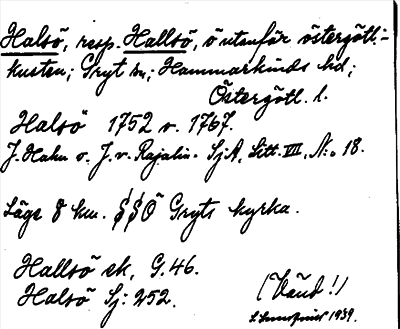 Halsö, resp. Hallsö, ö utanför östergötl.-
kusten; Gryt sn; Hammarkinds hd;
Östergötl. l.
Halsö 1752 o. 1767.
J. Hahn o. J. v. Rajalin. SjA, Litt. VII, N:o 18.
Läge 8 km. SSÖ Gryts kyrka.
Hallsö ek, G.46.
Halsö Sj: 252.
(Vänd!)
1939.